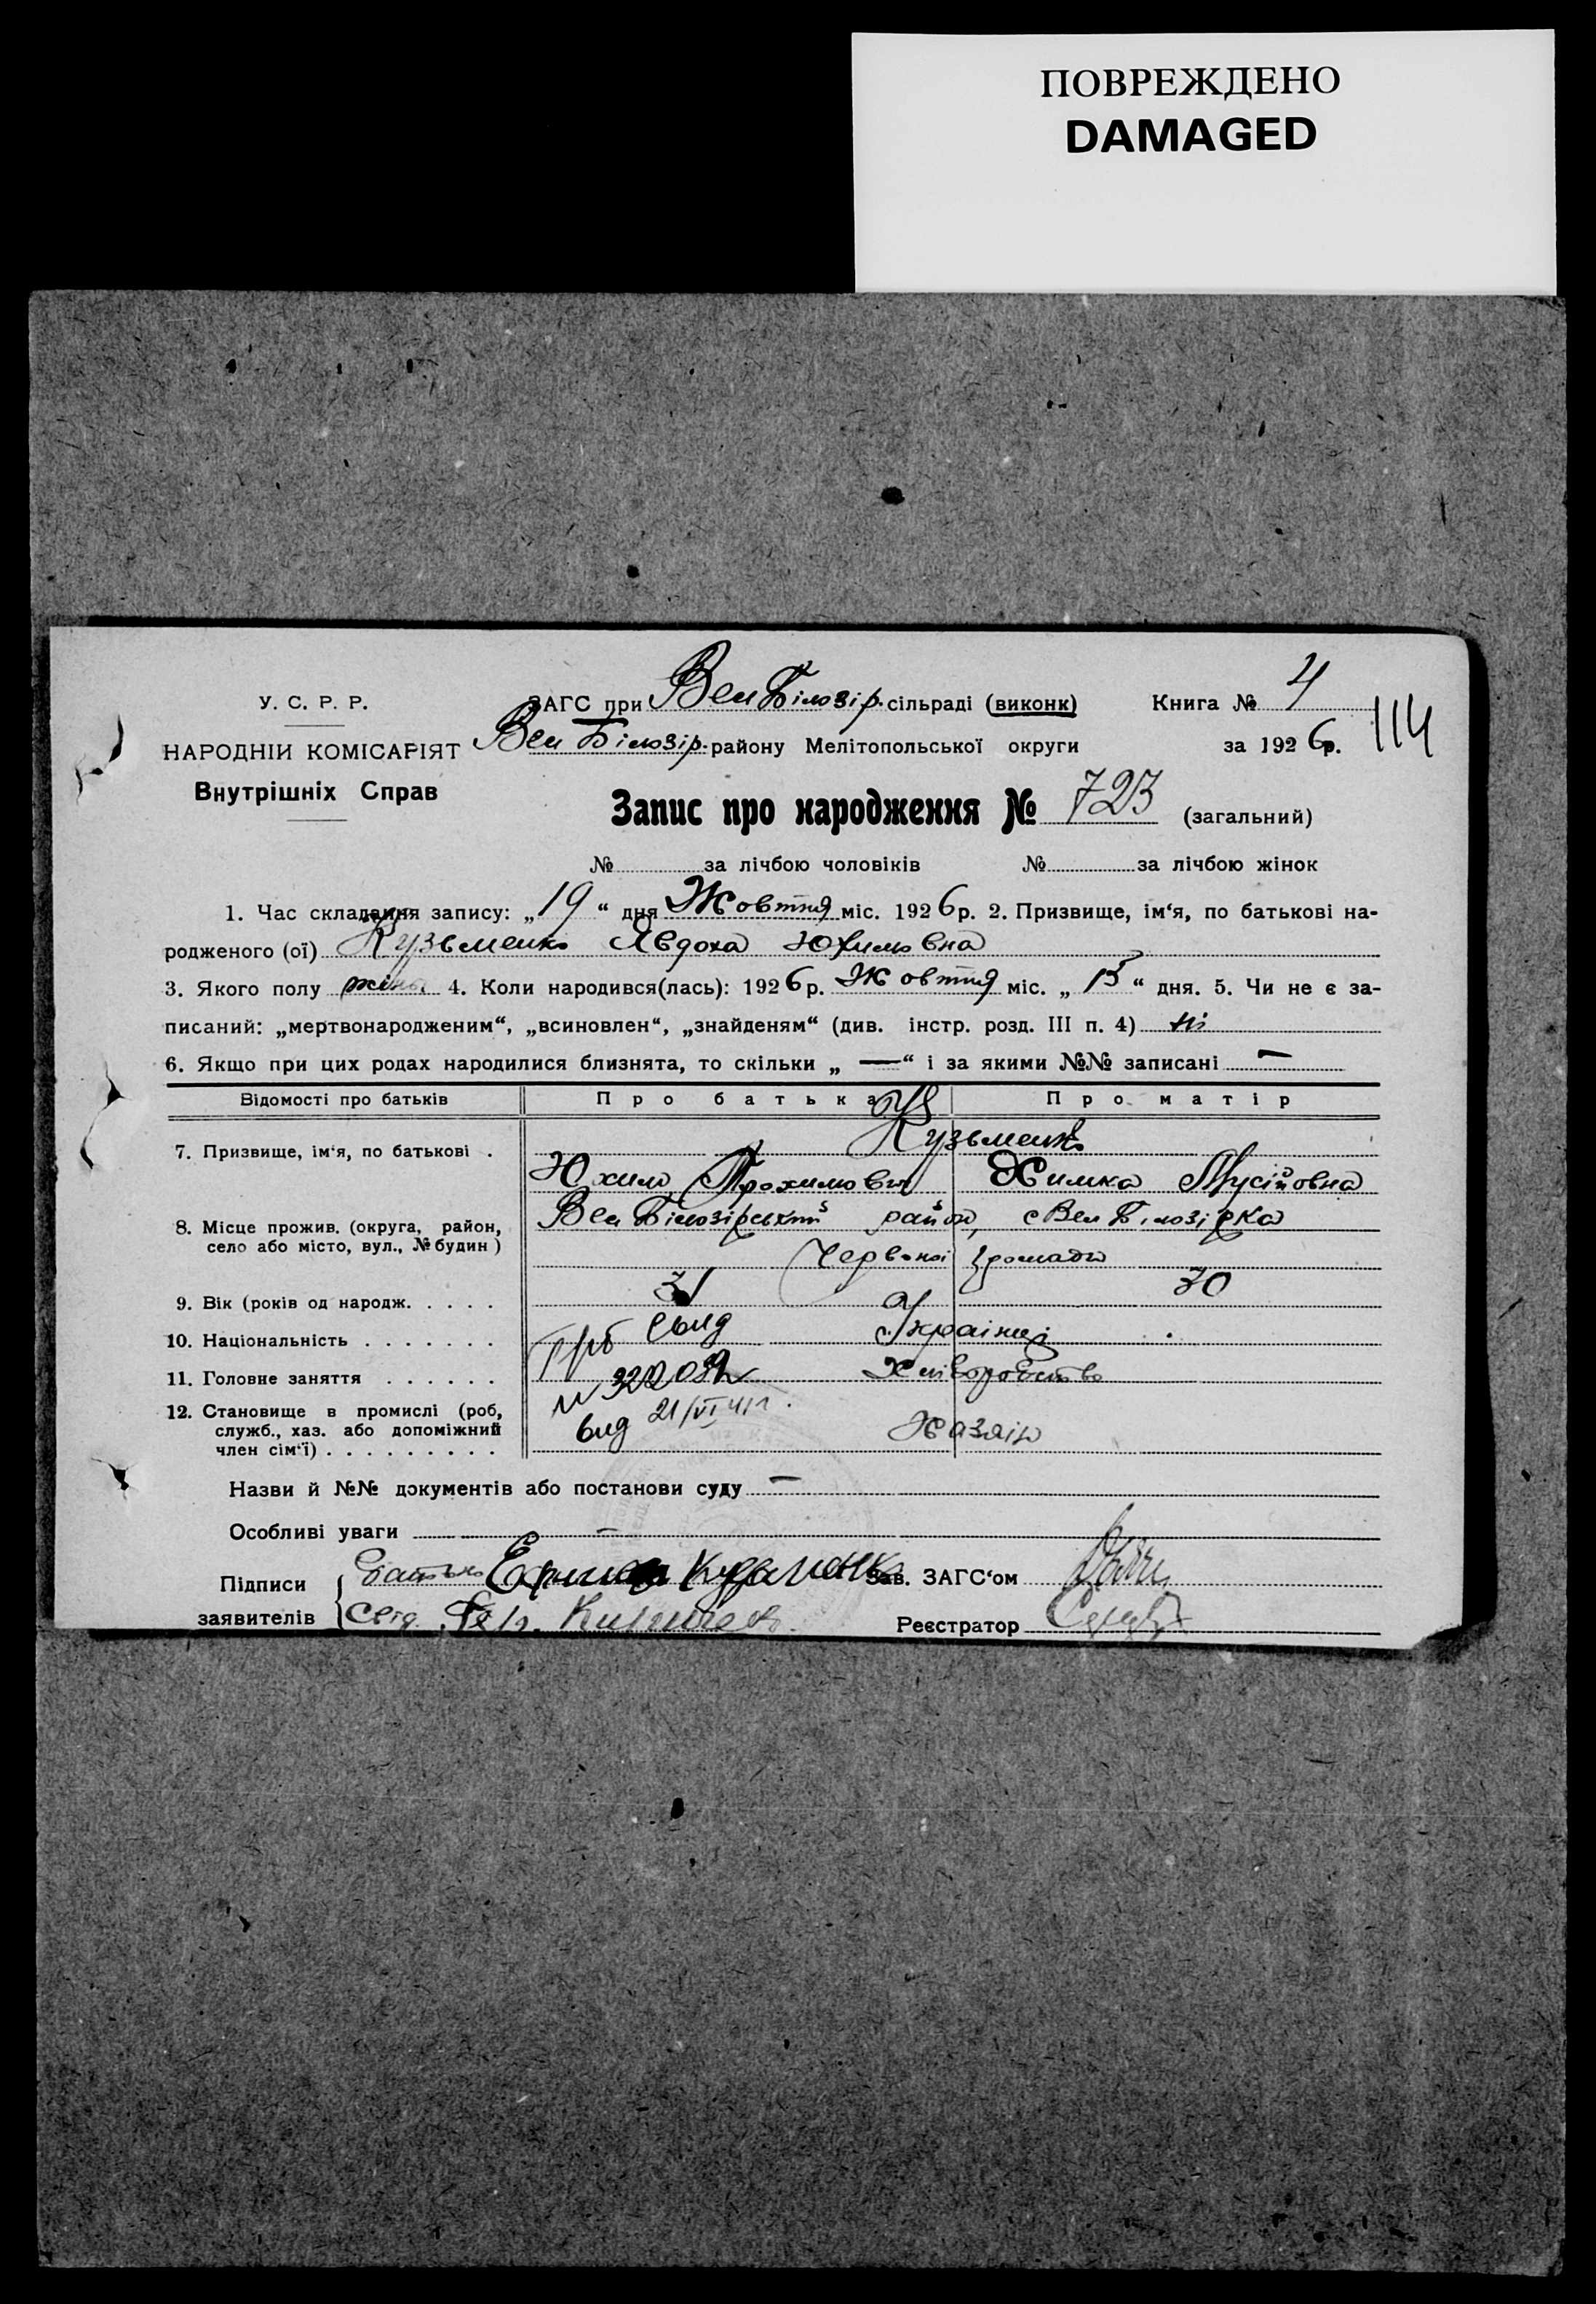 ПОВРЕЖДЕНО
DAMAGED
У. С. Р. Р.
НАРОДНІЙ КОМІСАРІЯТ
Внутрішніх Справ
ЗАГС при Вел Білозір. сільраді (виконк)
Книга № 4
114
Вел Білозір. району Мелітопольської округи
за 1926р.
Запис про народження № 723 (загальний)
№ за лічбою чоловіків № за лічбою жінок
1. Час складання запису: „19“ дня Жовтня міс. 1926р. 2. Призвище, ім‘я, по батькові на-
родженого (ої) Кузьменко Явдоха Юхимовна
3. Якого полу жіноч 4. Коли народився(лась): 1926р. Жовтня міс. „15“ дня. 5. Чи не є за-
писаний: „мертвонародженим“, „всиновлен“, „знайденям“ (див. інстр. розд. III п. 4) ні
6. Якщо при цих родах народилися близнята, то скільки „ — “ і за якими №№ записані —
Відомості про батьків Про батька Про матір
7. Призвище, ім‘я, по батькові . Кузьменко
Юхим Трохимович Химка Мусійовна
8. Місце прожив. (округа, район, Вел Білозірський район, с Вел Білозірка
село або місто, вул., № будин) Червоної громади
9. Вік (років од народж. . . . . 31 30
10. Національність . . . . . . . Українці
11. Головне заняття . . . . . . Хліборобство
12. Становище в промислі (роб,
служб., хаз. або допоміжний Хазяін
член сім‘ї) . . . . . . . . .
№ 322089
від 21/VI 41 г.
Назви й №№ документів або постанови суду —
Особливі уваги —
Підписи
заявителів
Батько Кузьменко
Свід.
Зав. ЗАГС‘ом
Реєстратор